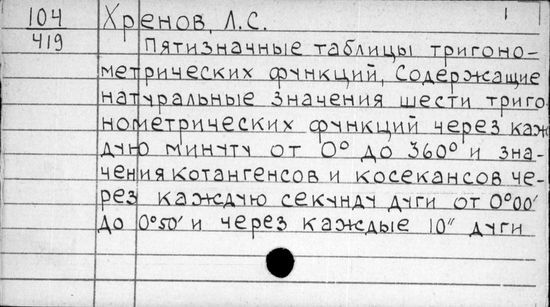 104 Хренов, Л.С.
419 Пятизначные таблицы тригоно-
метрических функций, Содержащие
натуральные значения шести триго
нометрических функций через каж
дую минуту от 0° до 360° и зна-
чения котангенсов и косекансов че-
рез каждую секунду дуги от 0°00'
до 0°50' и через каждые 10" дуги